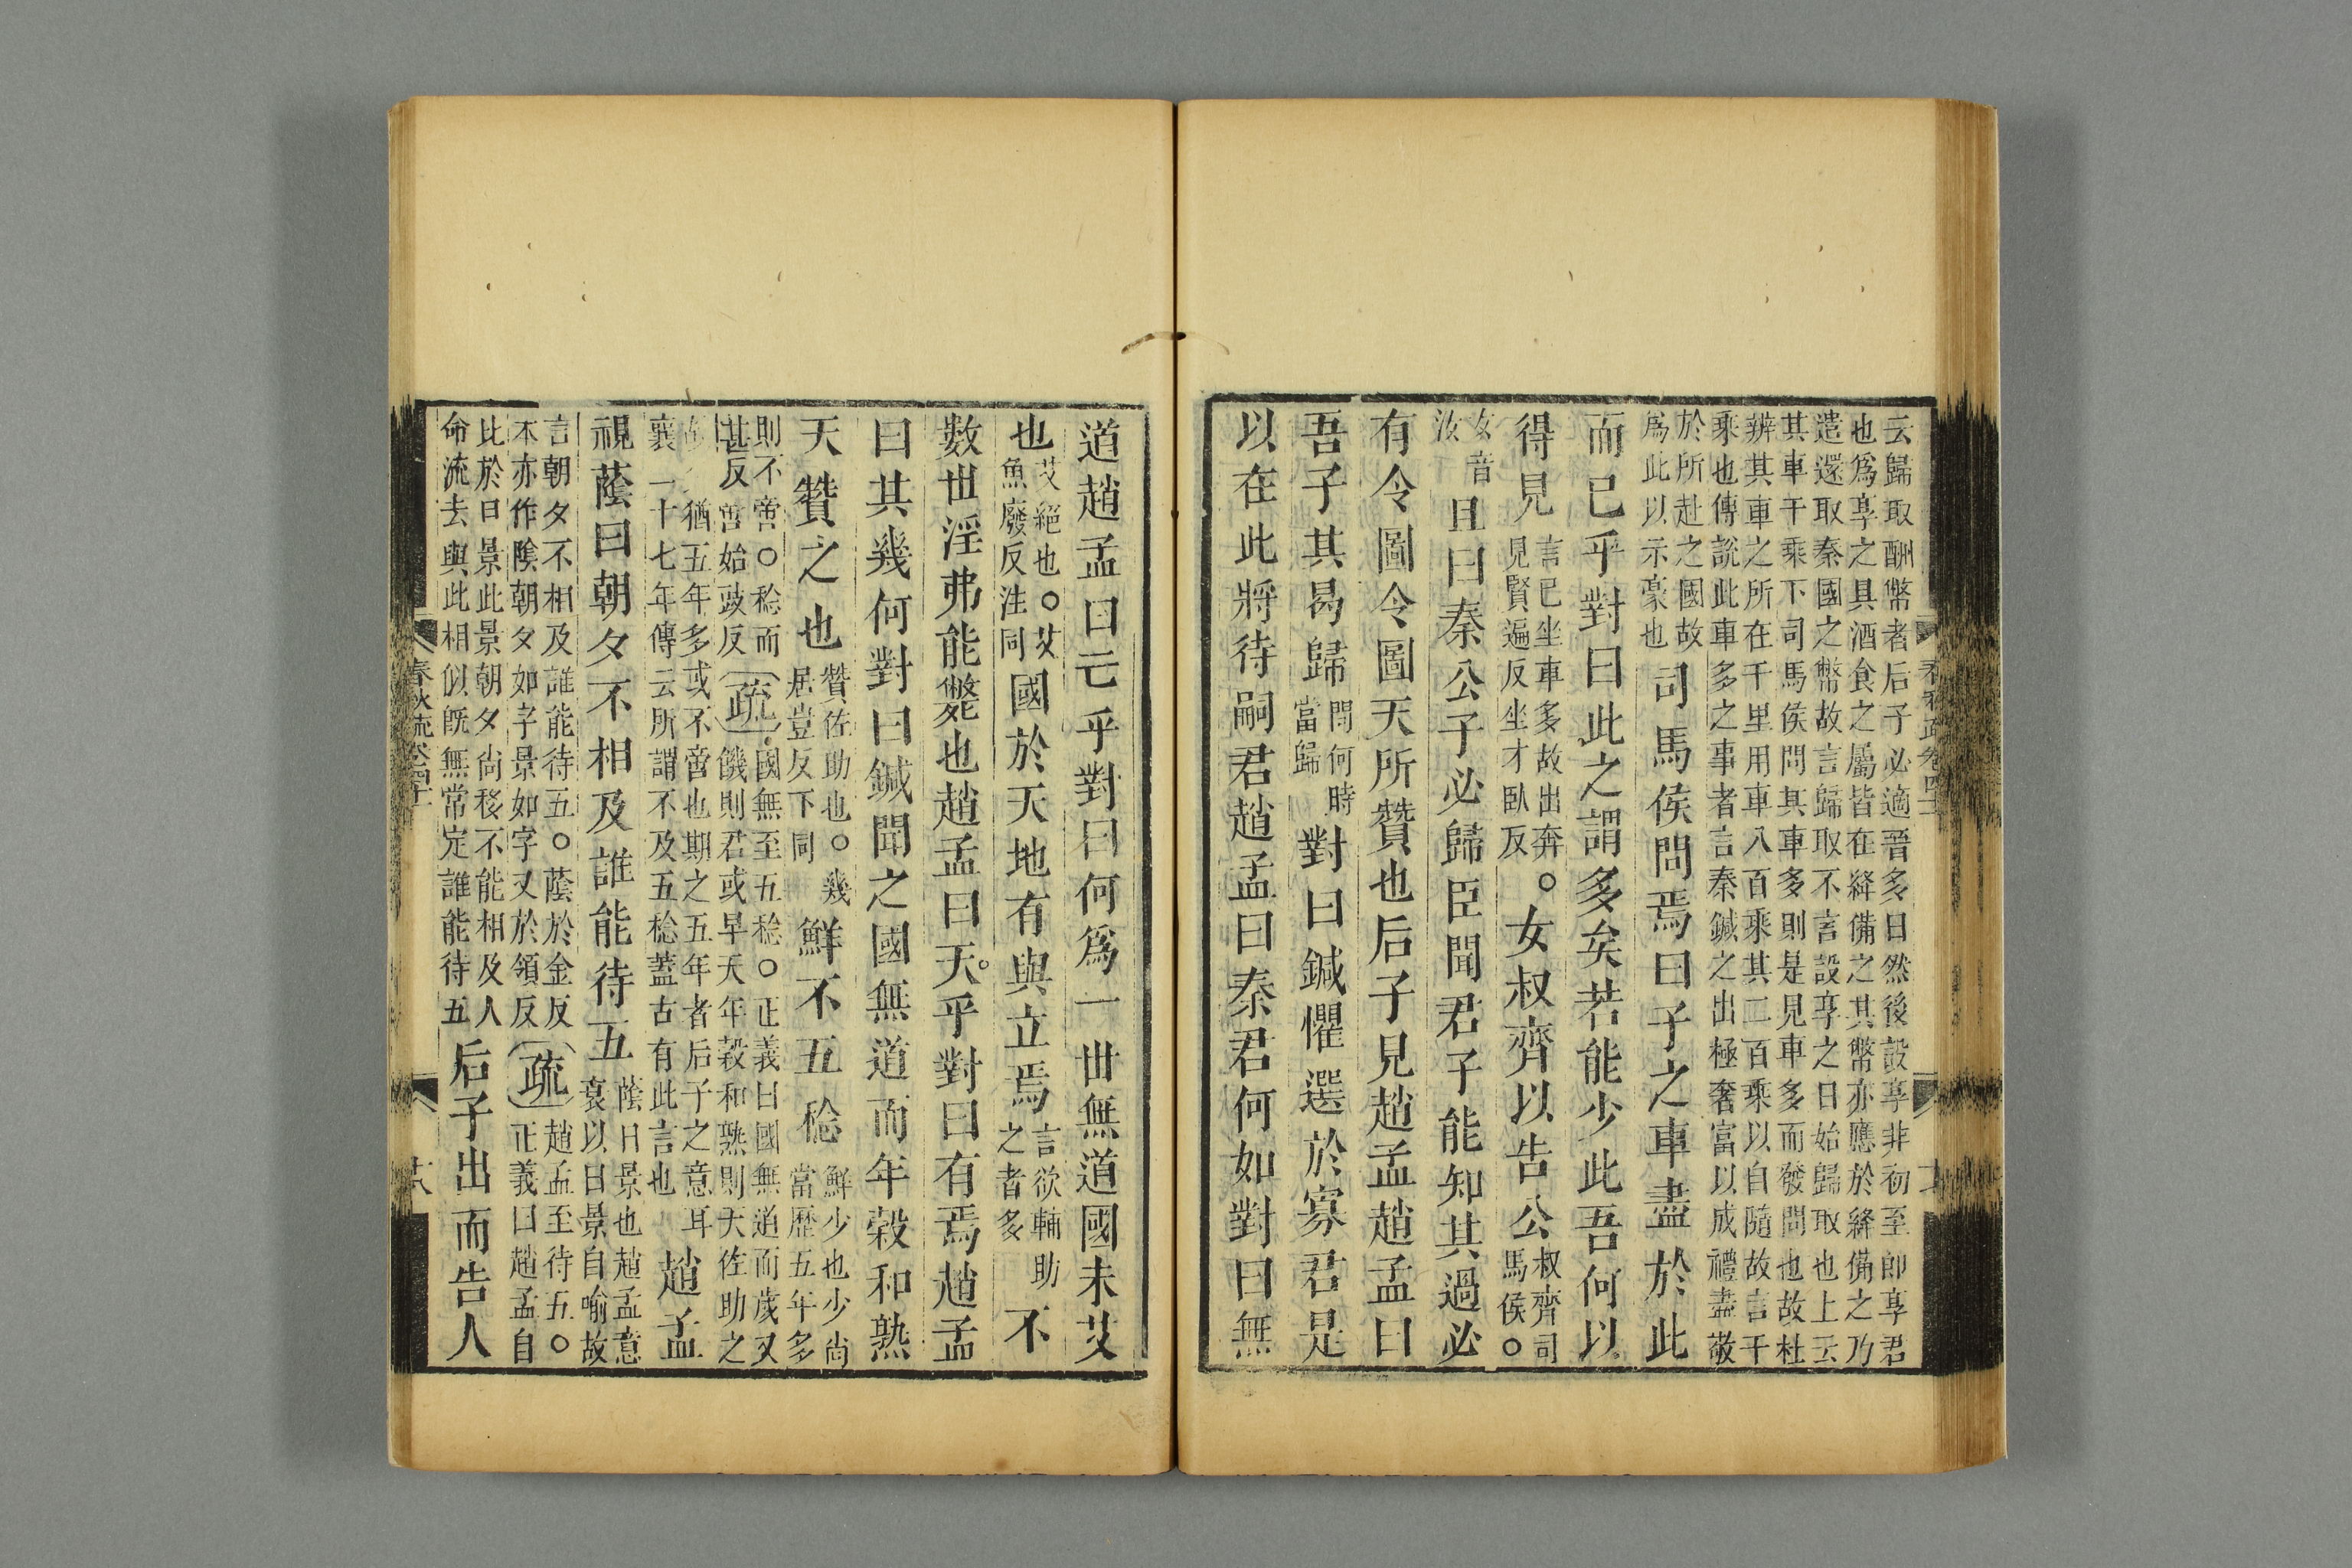 云歸取酬幣者后子必適晉多日然後設享非初至卽享君
也爲享之具酒食之屬皆在絳備之其幣亦應於絳備之乃
遣還取秦國之幣故言歸取不言設享之日始歸取也上云
其車千乘下司馬侯問其車多則是見車多而發問也故杜
辨其車之所在千里用車八百乘其二百乘以自隨故言千
乘也傳說此車多之事者言秦鍼之出極奢富以成禮盡敬
於所赴之國故
爲此以示豪也
司馬侯問焉曰子之車盡於此
而已乎對曰此之謂多矣若能少此吾何以
得見
言已坐車多故出奔
見賢遍反坐才臥反
○女叔齊以告公
叔齊司
馬侯○
女音
汝
且曰秦公子必歸臣聞君子能知其過必
有令圖令圖天所贊也后子見趙孟趙孟曰
吾子其曷歸
問何時
當歸
對曰鍼懼選於寡君是
以在此將待嗣君趙孟曰秦君何如對曰無
道趙孟曰亡乎對曰何爲一世無道國未艾
也
艾絕也○艾
魚廢反注同
國於天地有與立焉
言欲輔助
之者多
不
數世淫弗能斃也趙孟曰天乎對曰有焉趙孟
曰其幾何對曰鍼聞之國無道而年穀和熟
天贊之也
贊佐助也○幾
居豈反下同
鮮不五稔
鮮少也少尚
當歷五年多
則不啻○稔而
甚反啻始豉反
疏
國無至五稔○正義曰國無道而歲又
饑則君或早夭年穀和熟則天佐助之
猶五年多或不啻也期之五年者后子之意耳
襄二十七年傳云所謂不及五稔蓋古有此言也
趙孟
視蔭曰朝夕不相及誰能待五
蔭日景也趙孟意
衰以日景自喻故
言朝夕不相及誰能待五○蔭於金反
本亦作陰朝夕如字景如字又於領反
疏
趙孟至待五○
正義曰趙孟自
比於日景此景朝夕尚移不能相及人
命流去與此相似旣無常定誰能待五
后子出而告人
春秋疏卷四十一